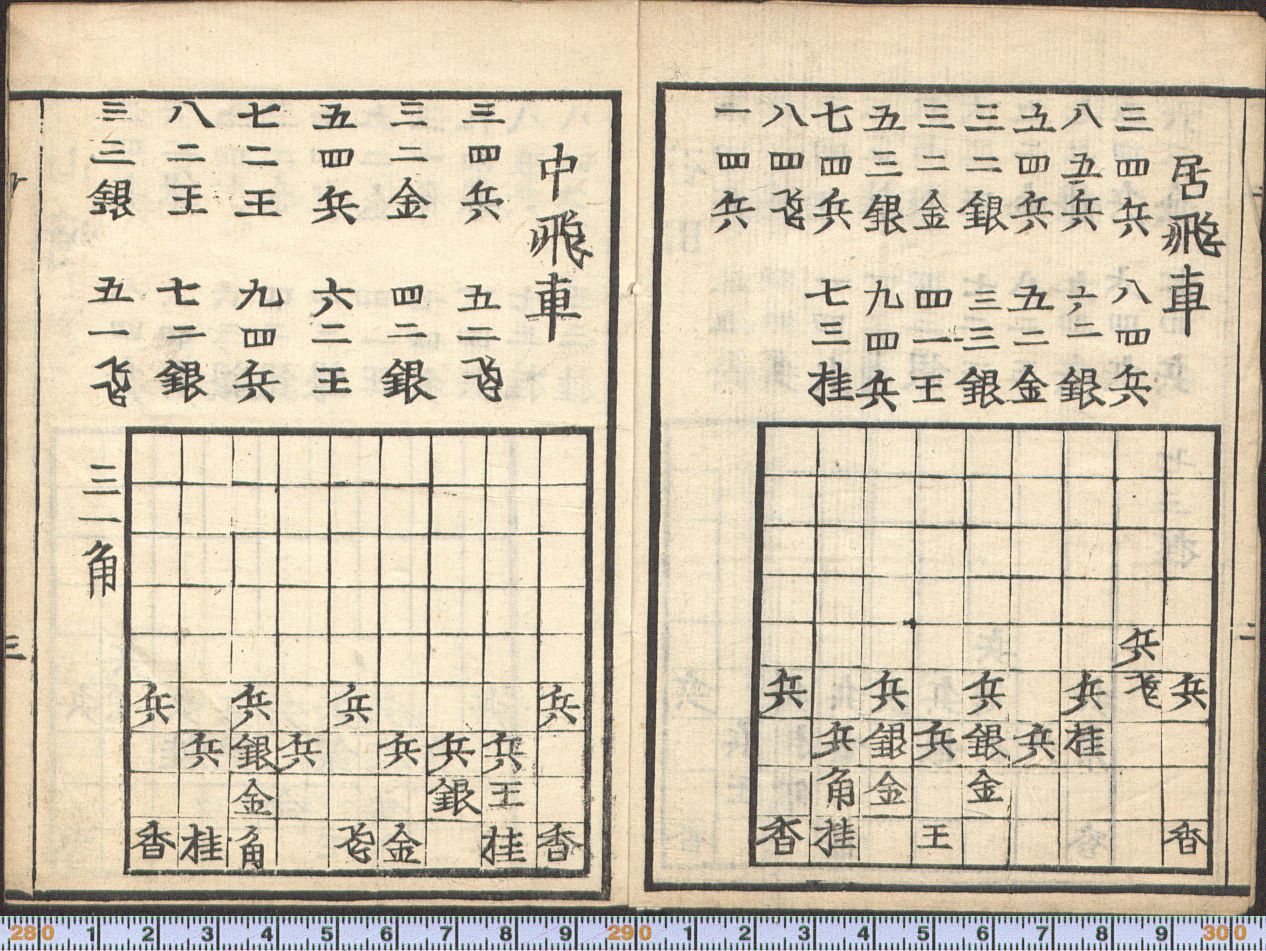 居飛車
三四兵 八四兵
八五兵 六二銀
五四兵 五二金
三二銀 三三銀
三二金 四一王
五三銀 九四兵
七四兵 七三桂
八四飛
一四兵
兵
兵 兵 兵 兵 飛 兵
兵 銀 兵 銀 兵 桂
角 金 金
香 桂 王 香
中飛車
三四兵 五二飛
三二金 四二銀
五四兵 六二王
七二王 九四兵
八二王 七二銀
三三銀 五一飛
三一角
兵 兵 兵 兵
兵 銀 兵 兵 兵 兵
金 銀 王
香 桂 角 飛 金 桂 香
三
280 1 2 3 4 5 6 7 8 9 290 1 2 3 4 5 6 7 8 9 300